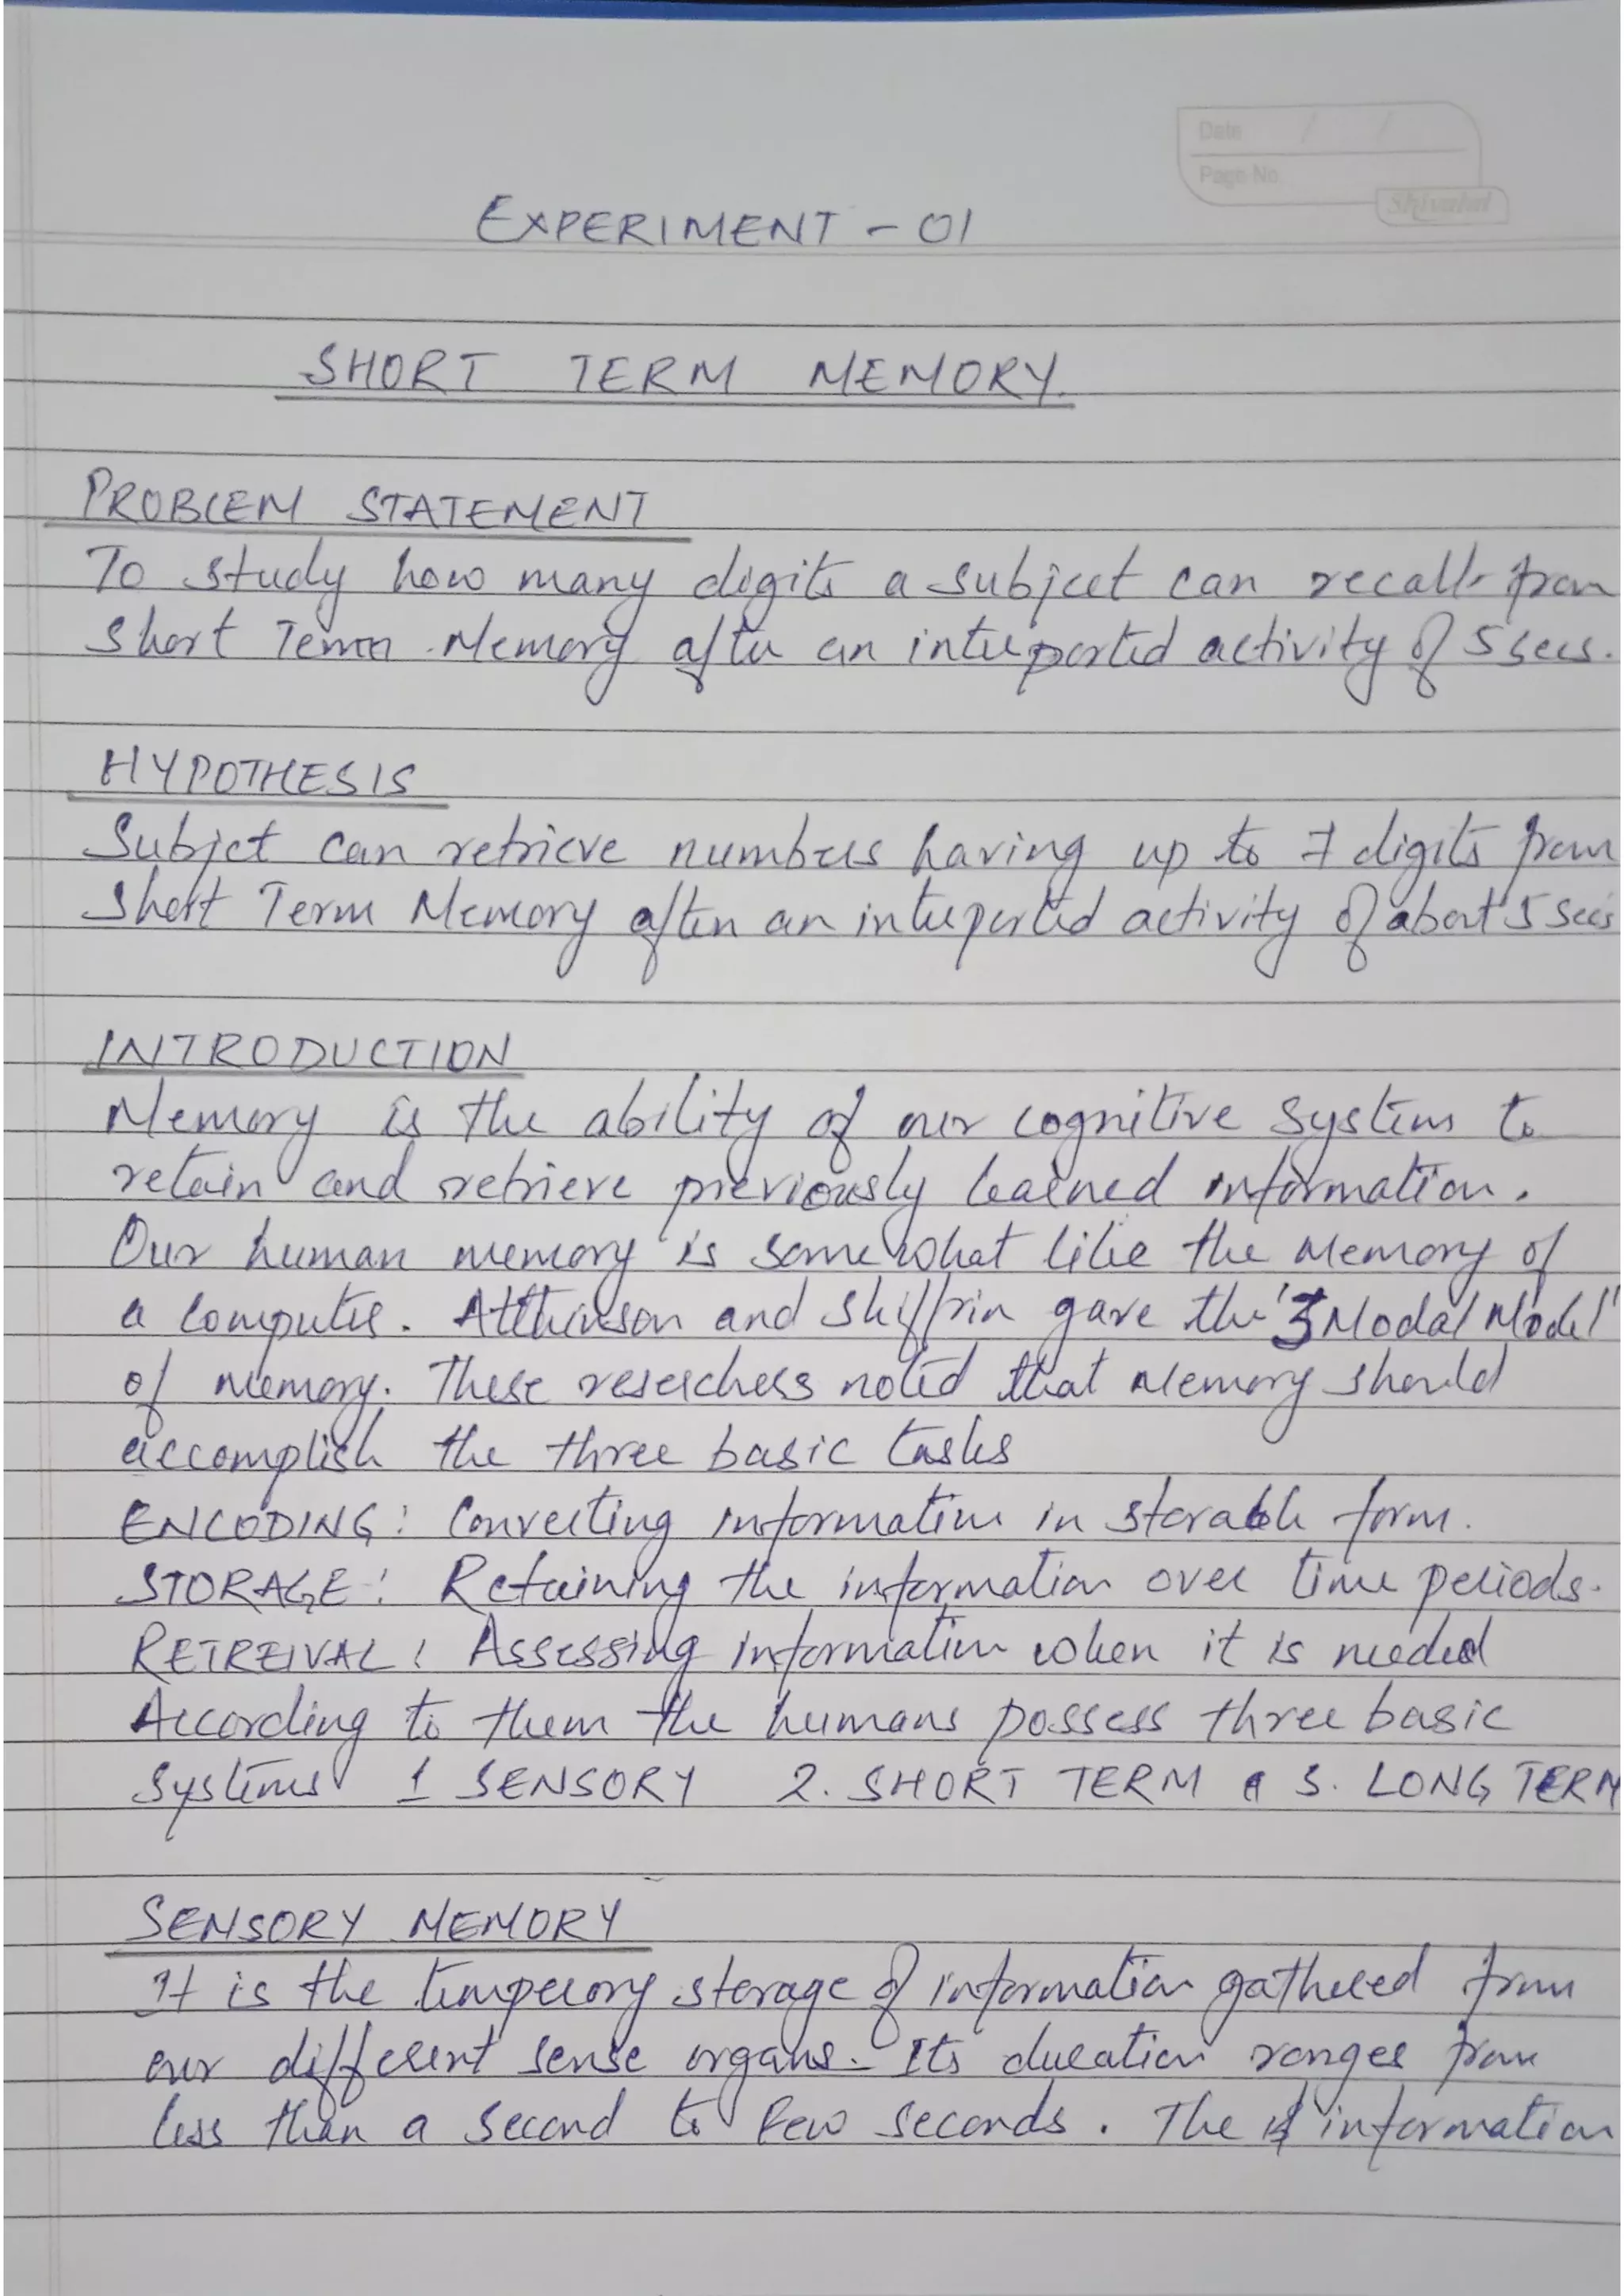 Date / /
Page No
Shivalal
EXPERIMENT - 01
SHORT TERM MEMORY.
PROBLEM STATEMENT
To study how many digits a subject can recall from
Short Term Memory after an interported activity of 5 secs.
HYPOTHESIS
Subject can retrieve numbers having up to 7 digits from
Short Term Memory after an interported activity of about 5 secs
INTRODUCTION
Memory is the ability of our cognitive system to
retain and retrieve previously learned information.
Our human memory is somewhat like the memory of
a computer. Atkinson and Shiffrin gave the "3 Modal Model"
of memory. These reserchers noted that memory should
accomplish the three basic tasks
ENCODING: Converting information in storable form.
STORAGE: Retaining the information over time periods.
RETREIVAL: Assessing information when it is needed
According to them the humans possess three basic
systems 1 SENSORY 2. SHORT TERM & 3. LONG TERM
SENSORY MEMORY
It is the temperory storage of information gathered from
our different sense organs. Its duration ranges from
less than a second to few seconds. The information